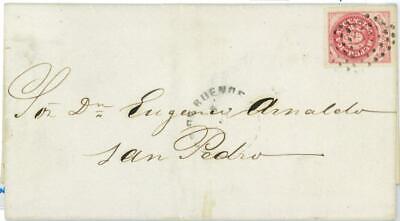 BUENOS
Sor Dn Eugenio Arnaldo
San Pedro